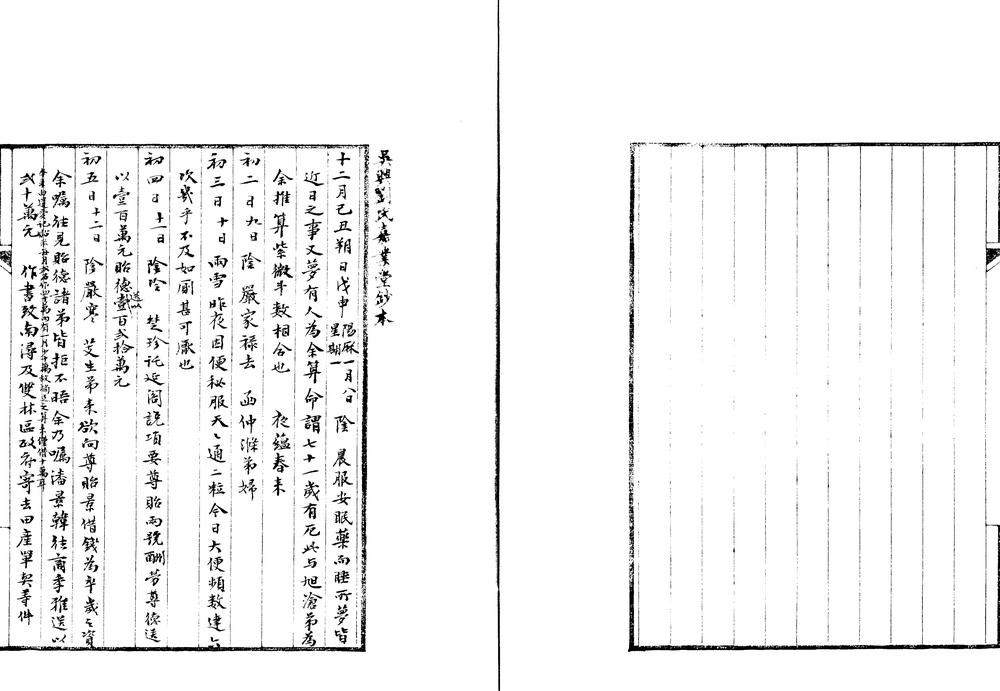 吳興劉氏嘉業堂鈔本
十二月己丑朔日戊申 陽厤一月八日 星期一 陰 晨服安眠藥而睡所夢皆
近日之事又夢有人為余算命謂七十一歲有厄此与旭滄弟為
余推算紫微斗数相合也 夜蕴春来
初二日九日 陰 嚴家祿去 函仲滌弟婦
初三日十日 雨雪 昨夜因便秘服天々通二粒今日大便頻数連六
次幾乎不及如厠甚可厭也
初四日十一日 陰 楚珍託延閣説項要尊貽兩號酬勞尊德送
以壹百萬元貽德送以壹百弍拾萬元
初五日十二日 陰嚴寒 芟生弟来欲向尊貽景借錢為卒歲之資
余囑往見貽德諸弟皆拒不晤余乃囑潘景韓往商李雅送以
弍十萬元 作書致南潯及雙林區政府寄去田產單契等件